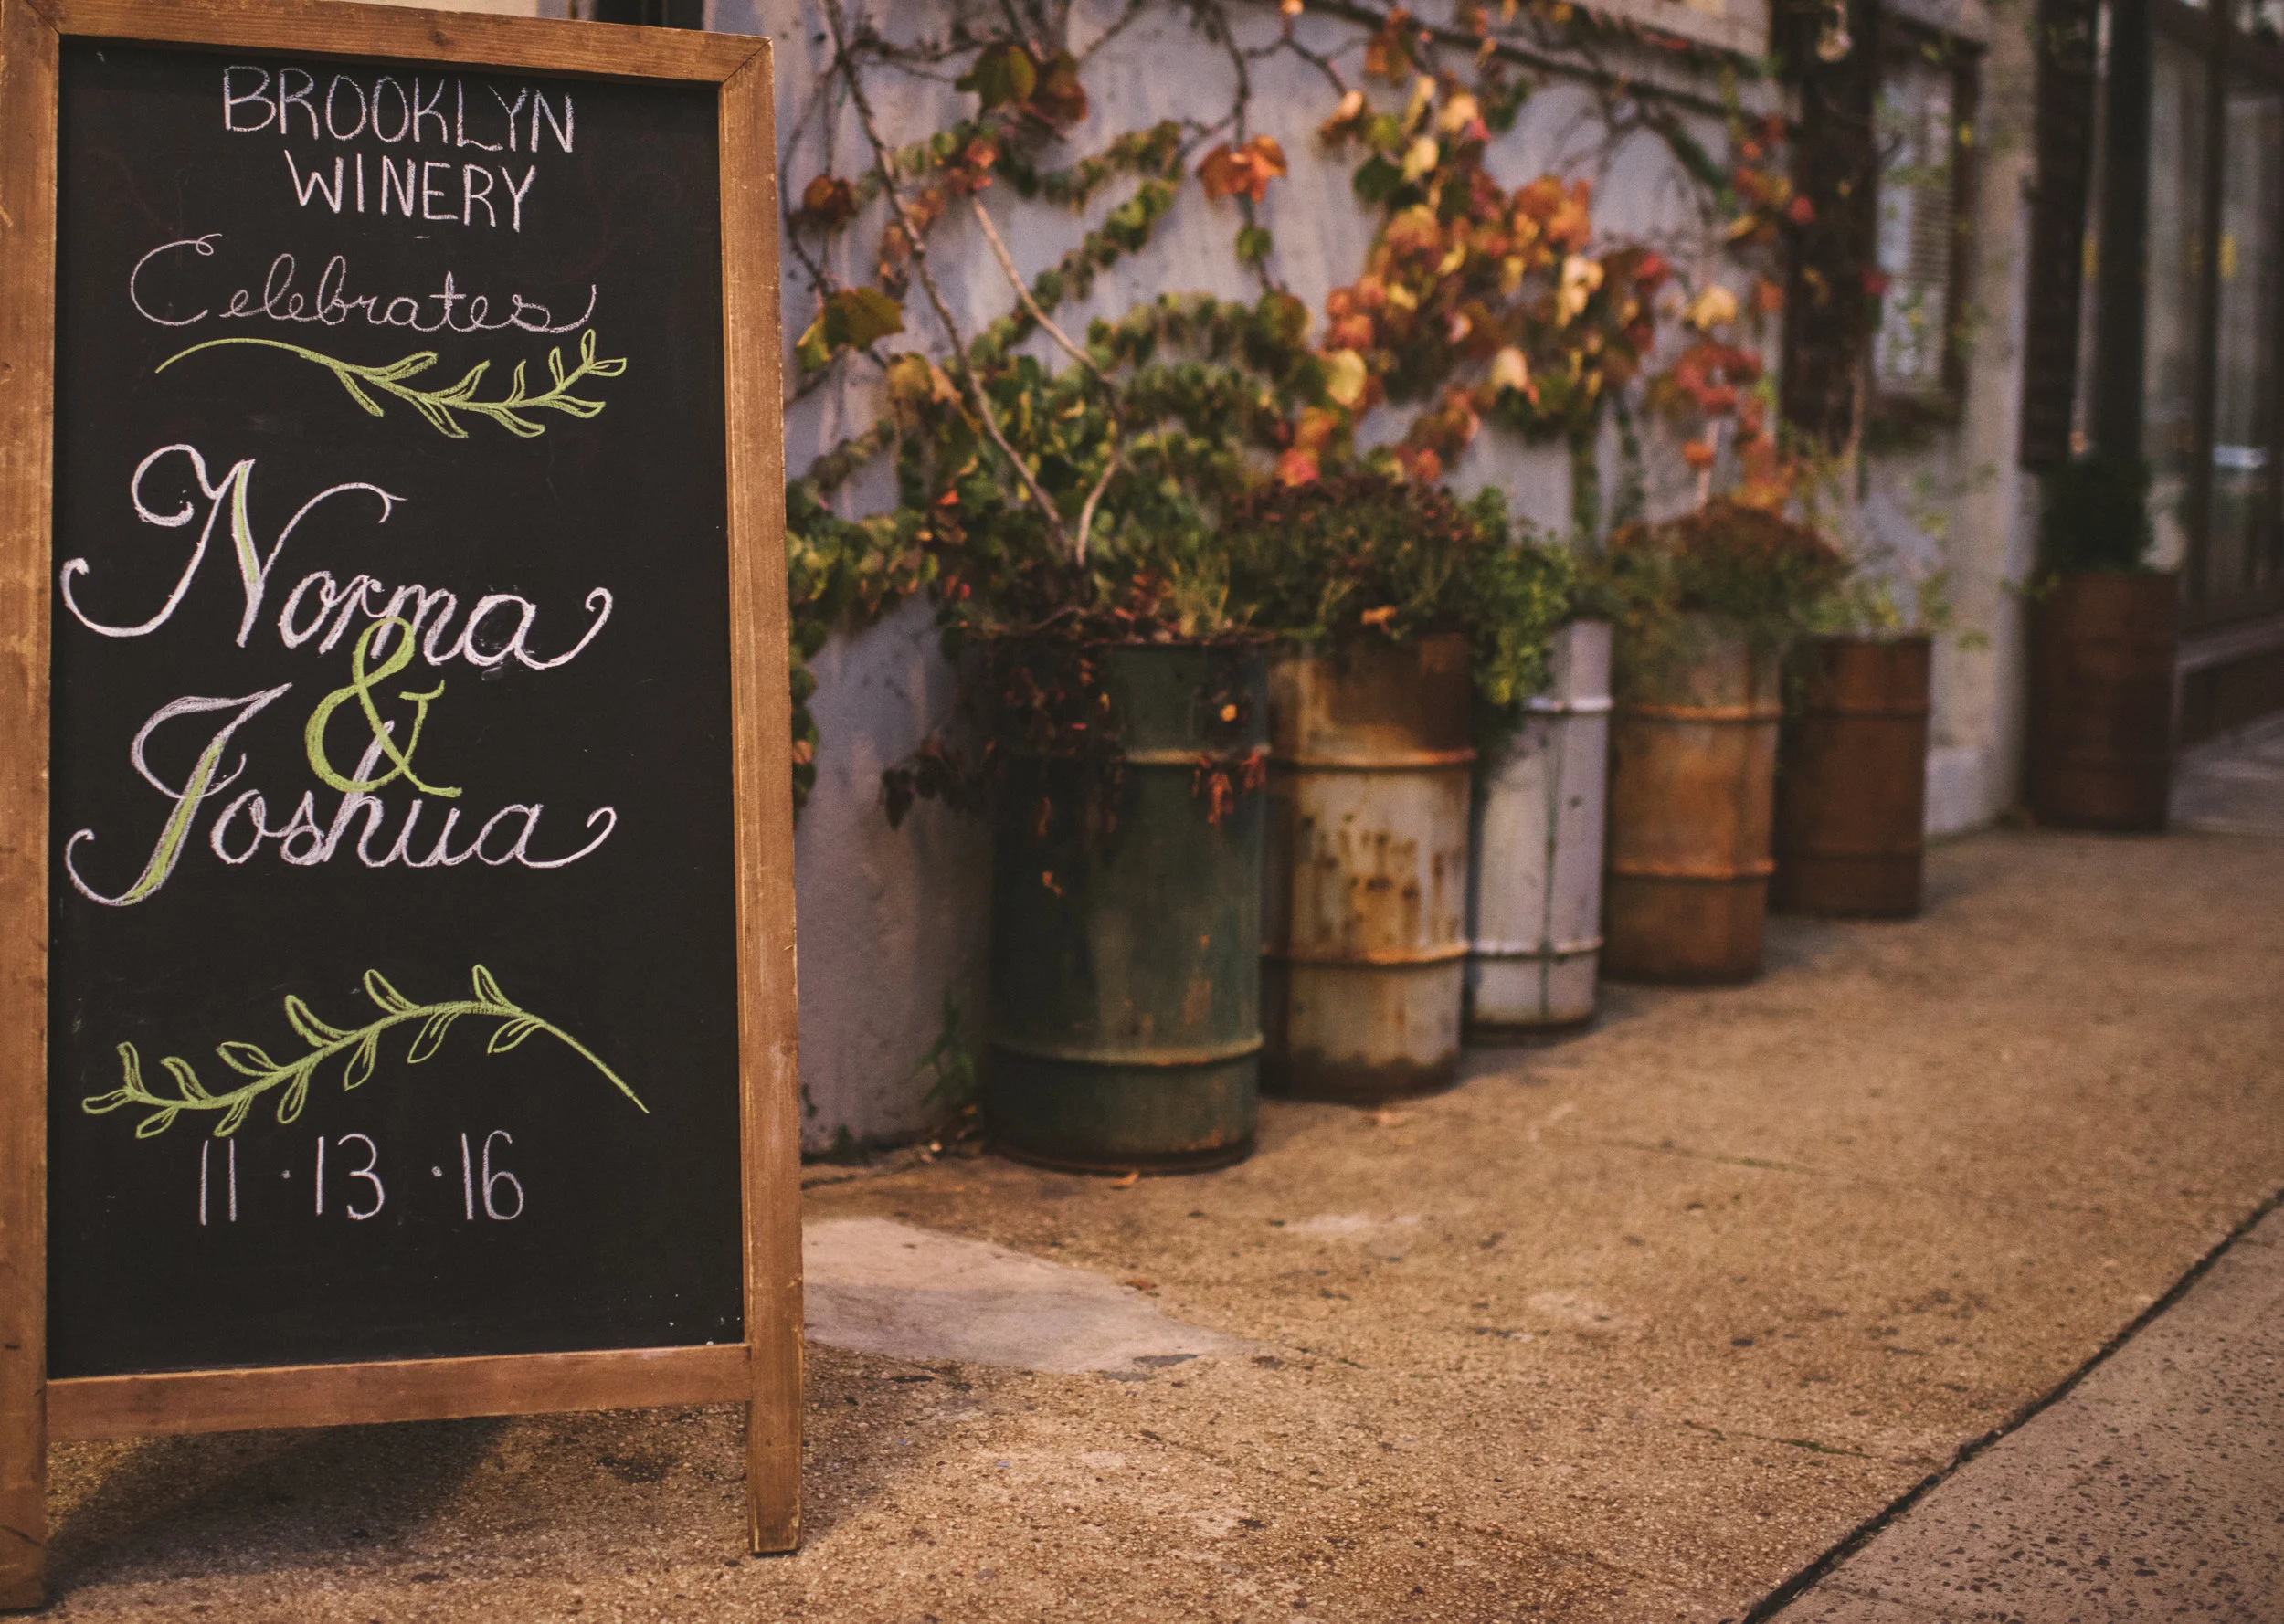 BROOKLYN
WINERY
Celebrates
Norma
&
Joshua
11·13·16